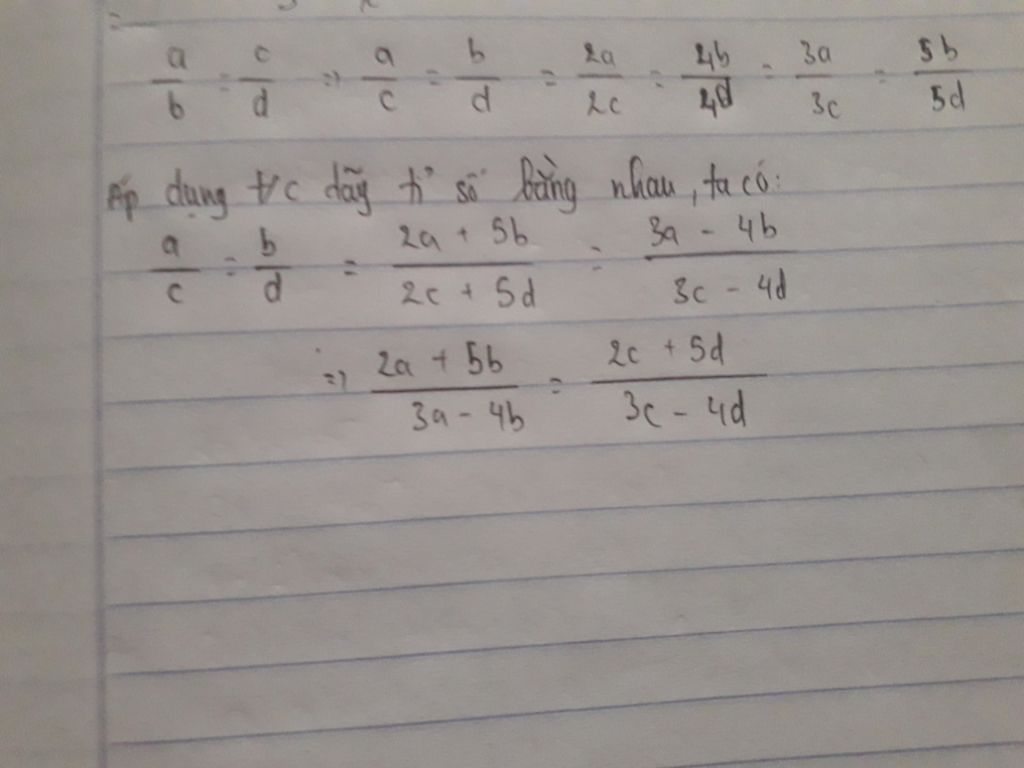 a/b = c/d => a/c = b/d = 2a/2c = 4b/4d = 3a/3c = 5b/5d
Áp dụng t/c dãy tỉ số bằng nhau, ta có:
a/c = b/d = (2a + 5b)/(2c + 5d) = (3a - 4b)/(3c - 4d)
=> (2a + 5b)/(3a - 4b) = (2c + 5d)/(3c - 4d)